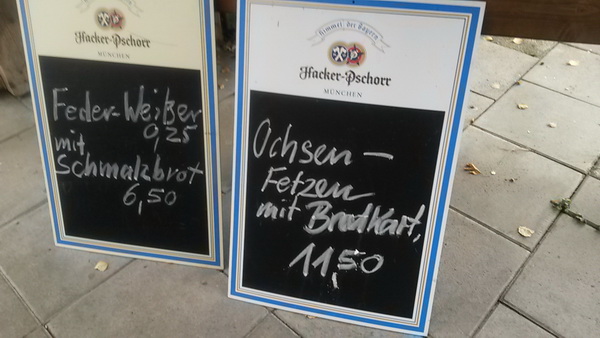 Hacker-Pschorr
MÜNCHEN
Feder-Weißer
0,25
mit
Schmalzbrot
6,50
Himmel der Bayern
Hacker-Pschorr
MÜNCHEN
Ochsen-
Fetzen
mit Bratkart.
11,50